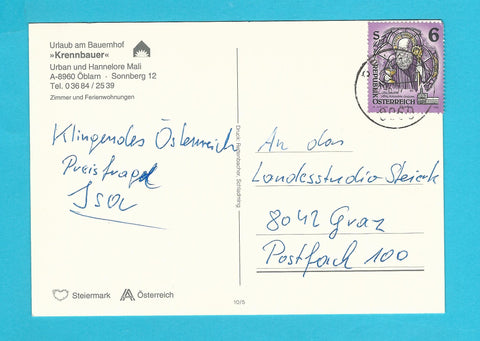 Urlaub am Bauernhof
»Krennbauer«
Urban und Hannelore Mali
A-8960 Öblarn · Sonnberg 12
Tel. 0 36 84 / 25 39
Zimmer und Ferienwohnungen
Klingendes Österreich
Preisfrage
Steiermark Österreich
Druck: Rettenbacher, Schladming
10/5
S 6
REPUBLIK
ÖSTERREICH
An das
Landesstudio Steierk
8042 Graz
Postfach 100